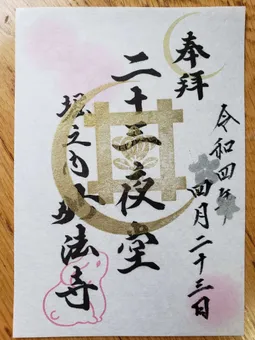 奉拝
令和四年四月二十三日
二十三夜堂
堀之内妙法寺